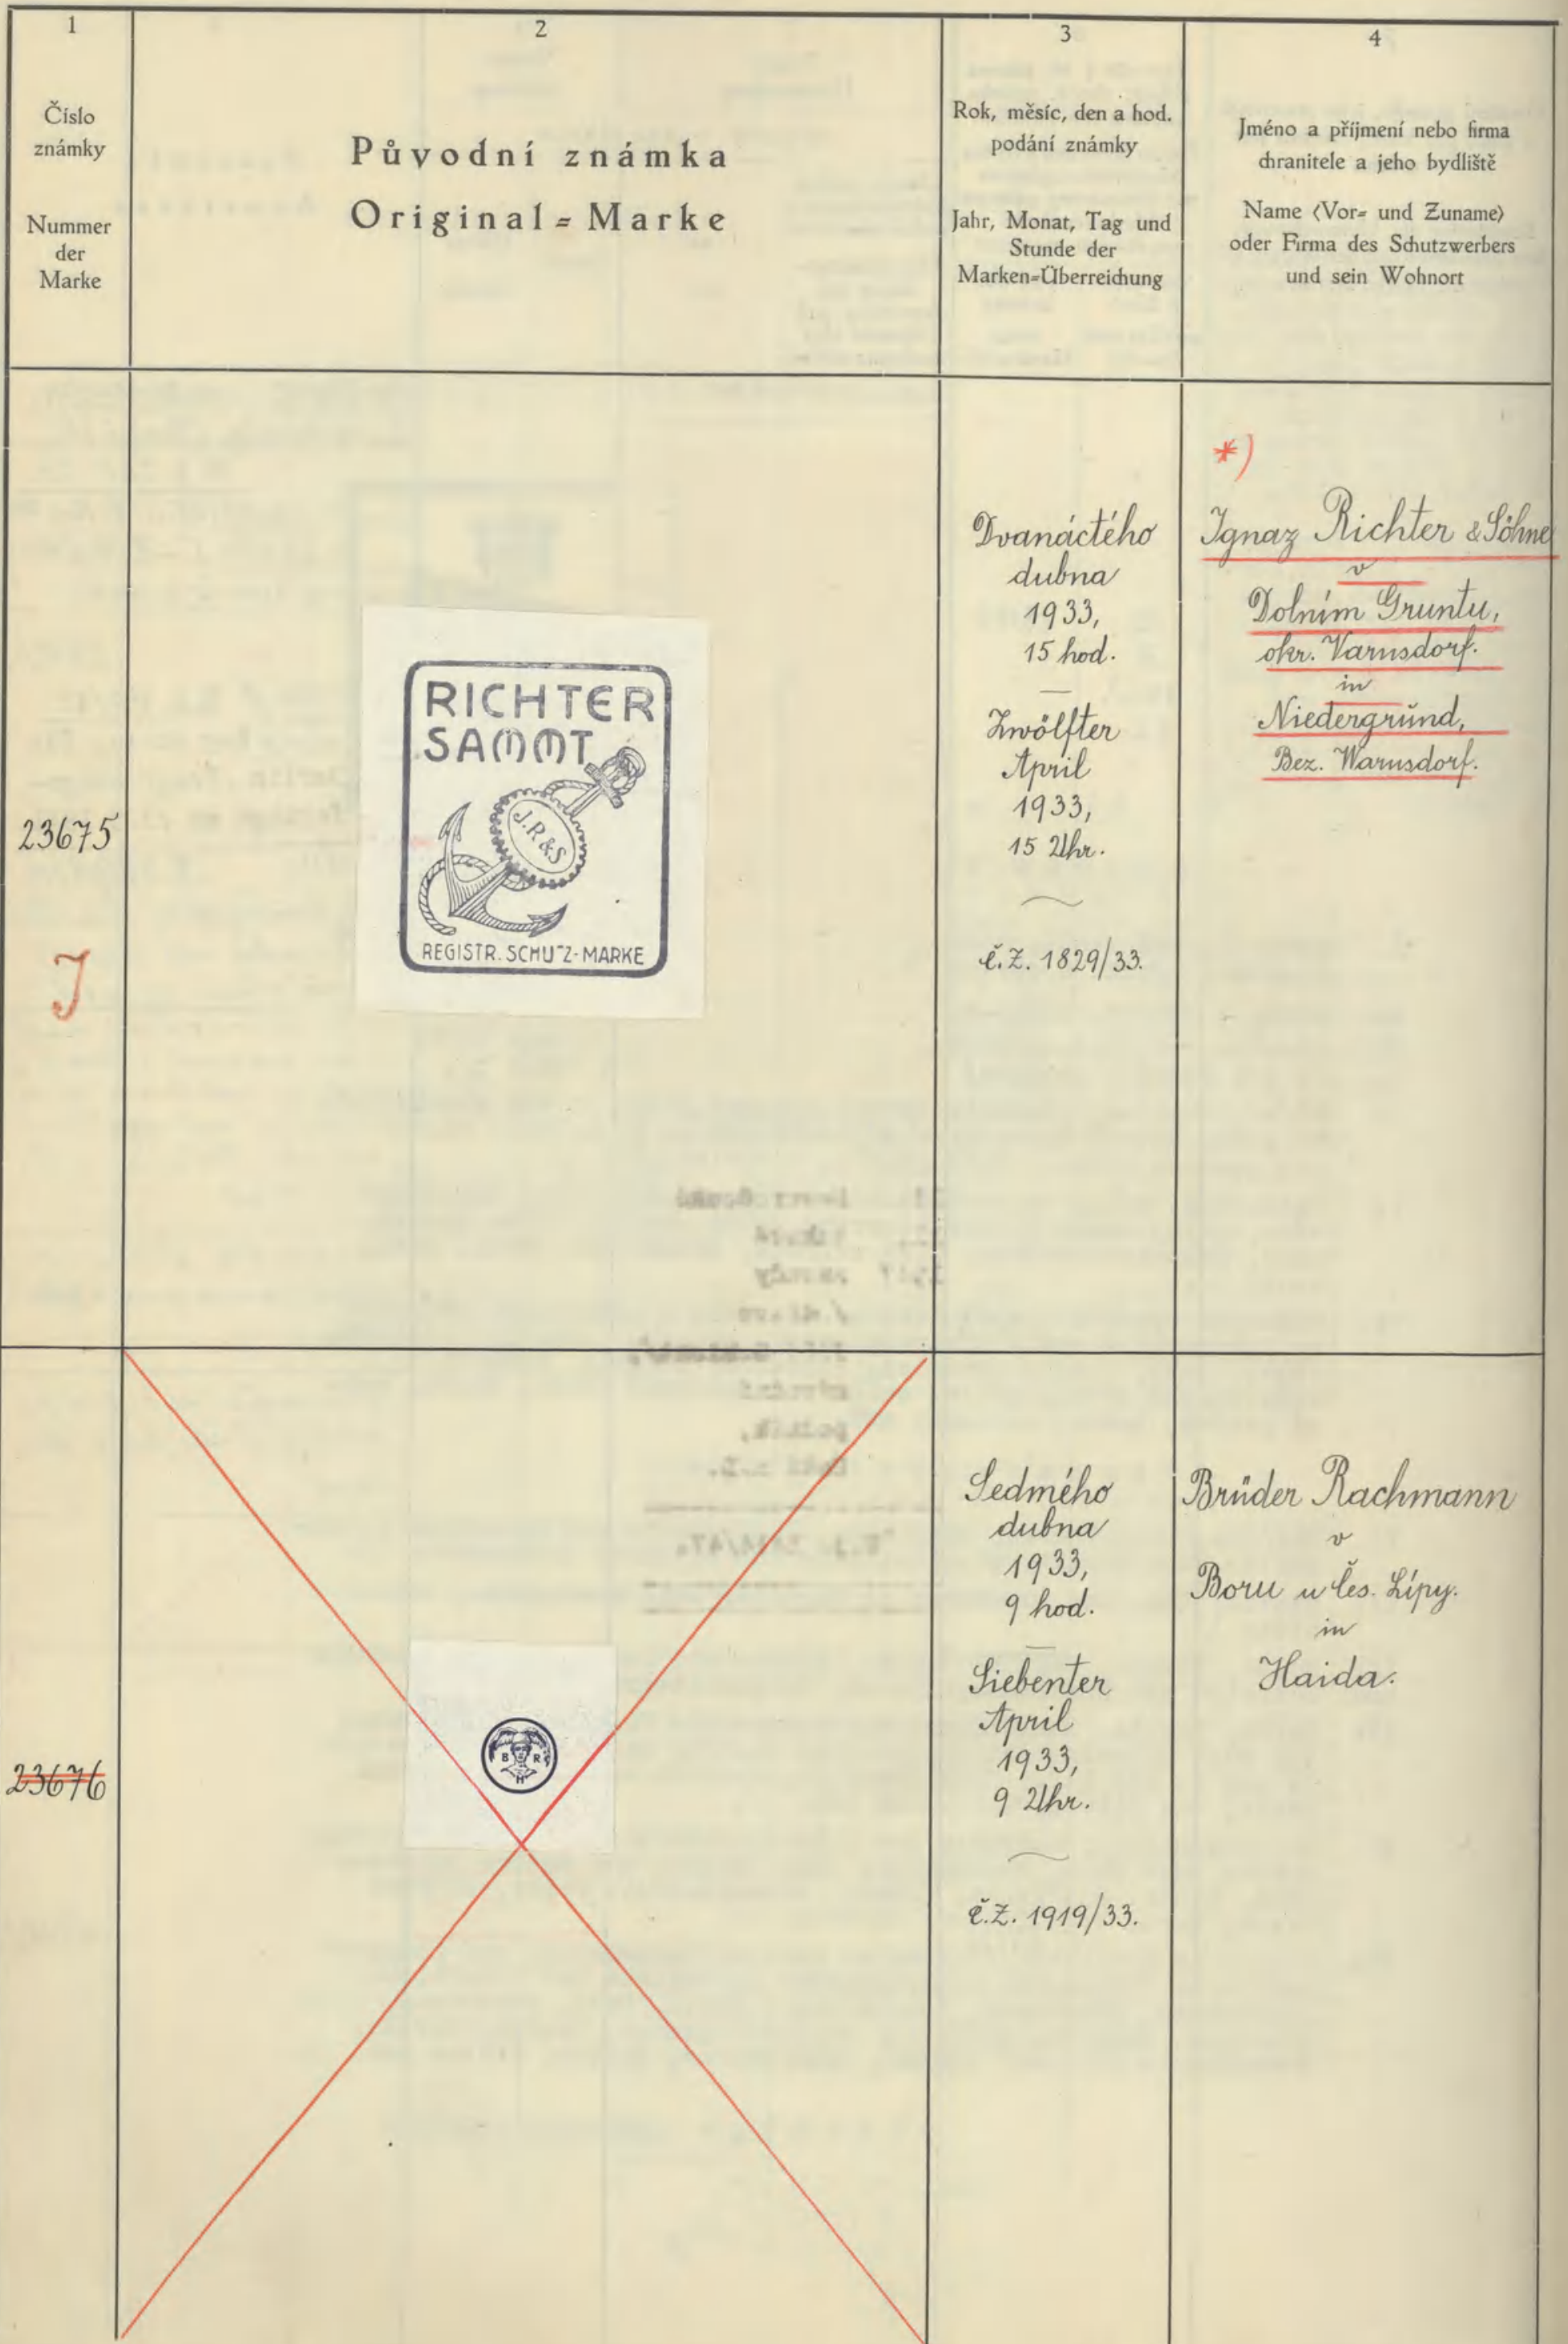 1
Číslo
známky
Nummer
der
Marke
2
Původní známka
Original=Marke
3
Rok, měsíc, den a hod.
podání známky
Jahr, Monat, Tag und
Stunde der
Marken=Überreichung
4
Jméno a příjmení nebo firma
chranitele a jeho bydliště
Name (Vor= und Zuname)
oder Firma des Schutzwerbers
und sein Wohnort
23675
J
RICHTER
SAMMT
J.R&S
REGISTR. SCHUTZ-MARKE
Dvanáctého
dubna
1933,
15 hod.
Zwölfter
April
1933,
15 Uhr.
č.z. 1829/33.
*)
Ignaz Richter & Söhne
v
Dolním Gruntu,
okr. Varnsdorf.
in
Niedergrund,
Bez. Warnsdorf.
23676
B R
H
Sedmého
dubna
1933,
9 hod.
Siebenter
April
1933,
9 Uhr.
č.z. 1919/33.
Brüder Rachmann
v
Boru u Čes. Lípy.
in
Haida.